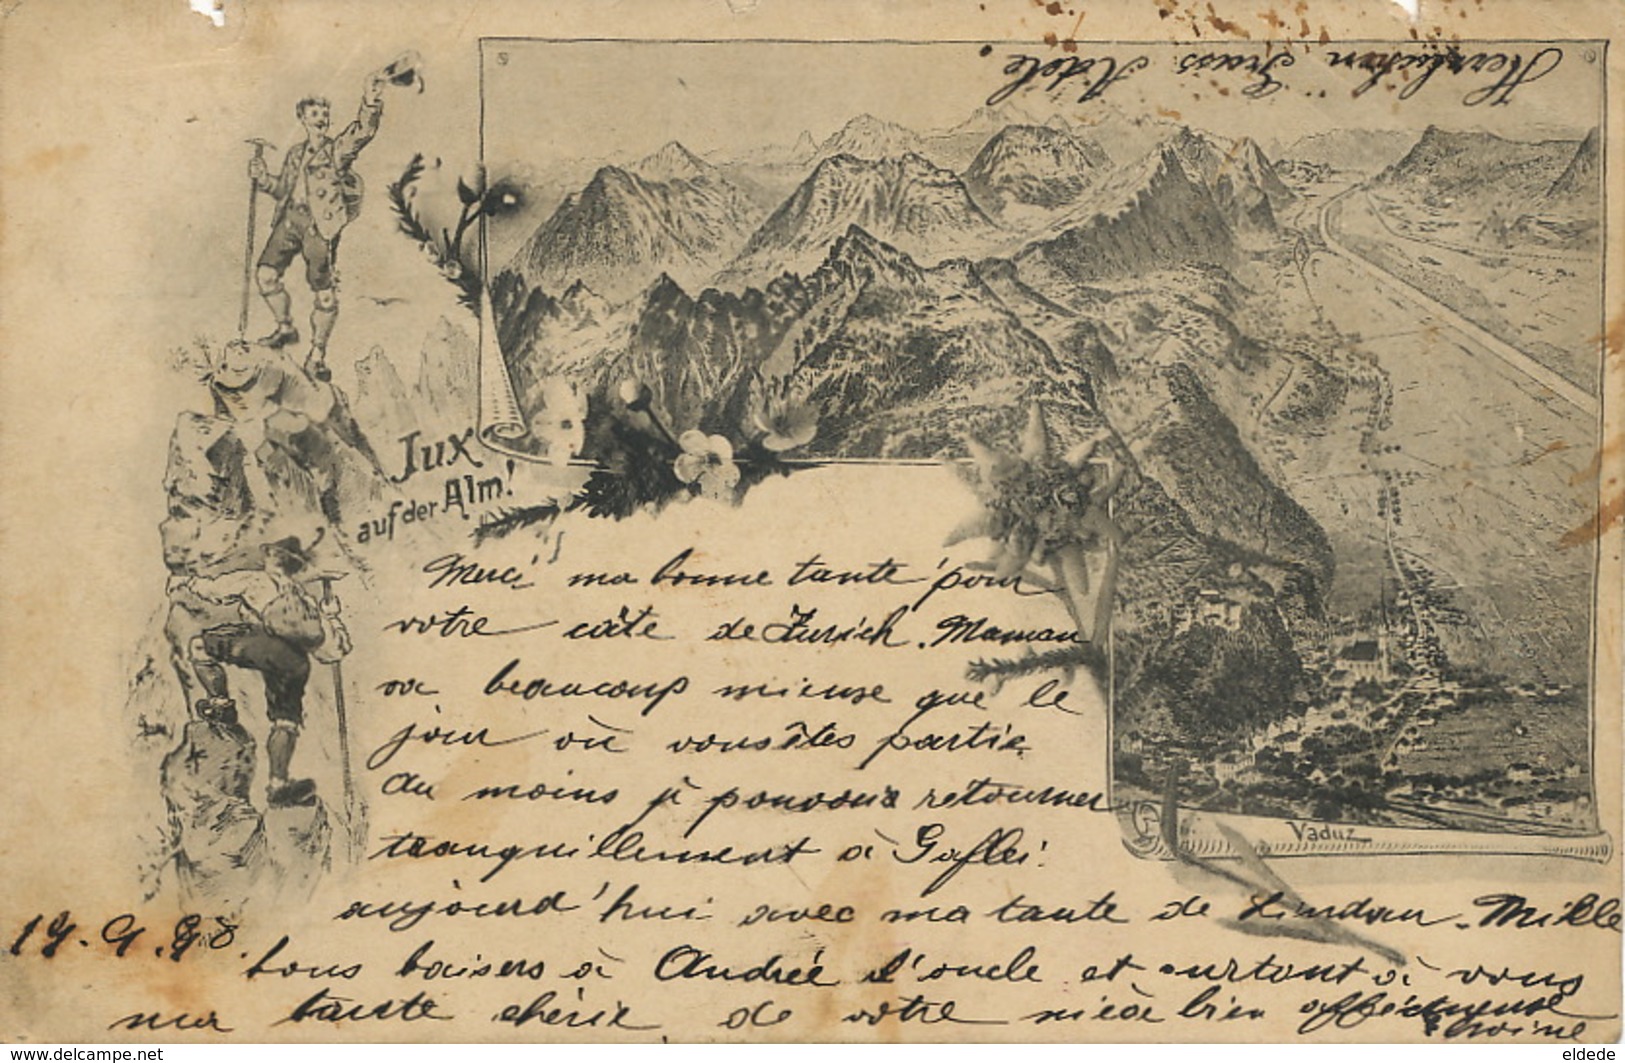 Herzlichen Gruss Adele.
Jux
auf der Alm!
Merci ma bonne tante pour
votre câte de Zurich. Maman
va beaucoup mieuse que le
jour où vous êtes partie
Au moins je pouvons retourner
tranquillement à Gaflei.
aujourd'hui avec ma tante de Lindau. Mille
bons baisers à Andrée l'oncle et surtout à vous
ma tante chérie de votre nièce bien affectueuse
Vaduz
eldede